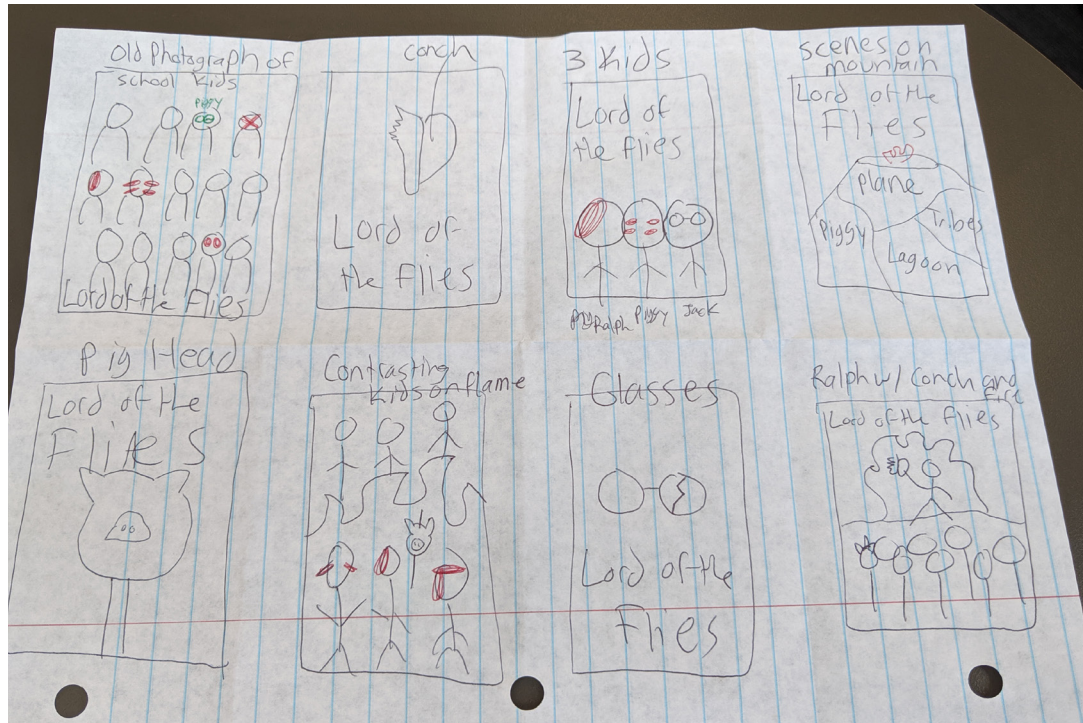 Old Photograph of
school kids
Piggy
Lord of the Flies
conch
Lord of
the Flies
3 Kids
Lord of
the flies
Ralph Piggy Jack
scenes on
mountain
Lord of the
Flies
plane
Piggy
Tribes
Lagoon
Pig Head
Lord of the
Flies
Contrasting
Kids on flame
Glasses
Lord of the
Flies
Ralph w/ Conch and
Lord of the Flies